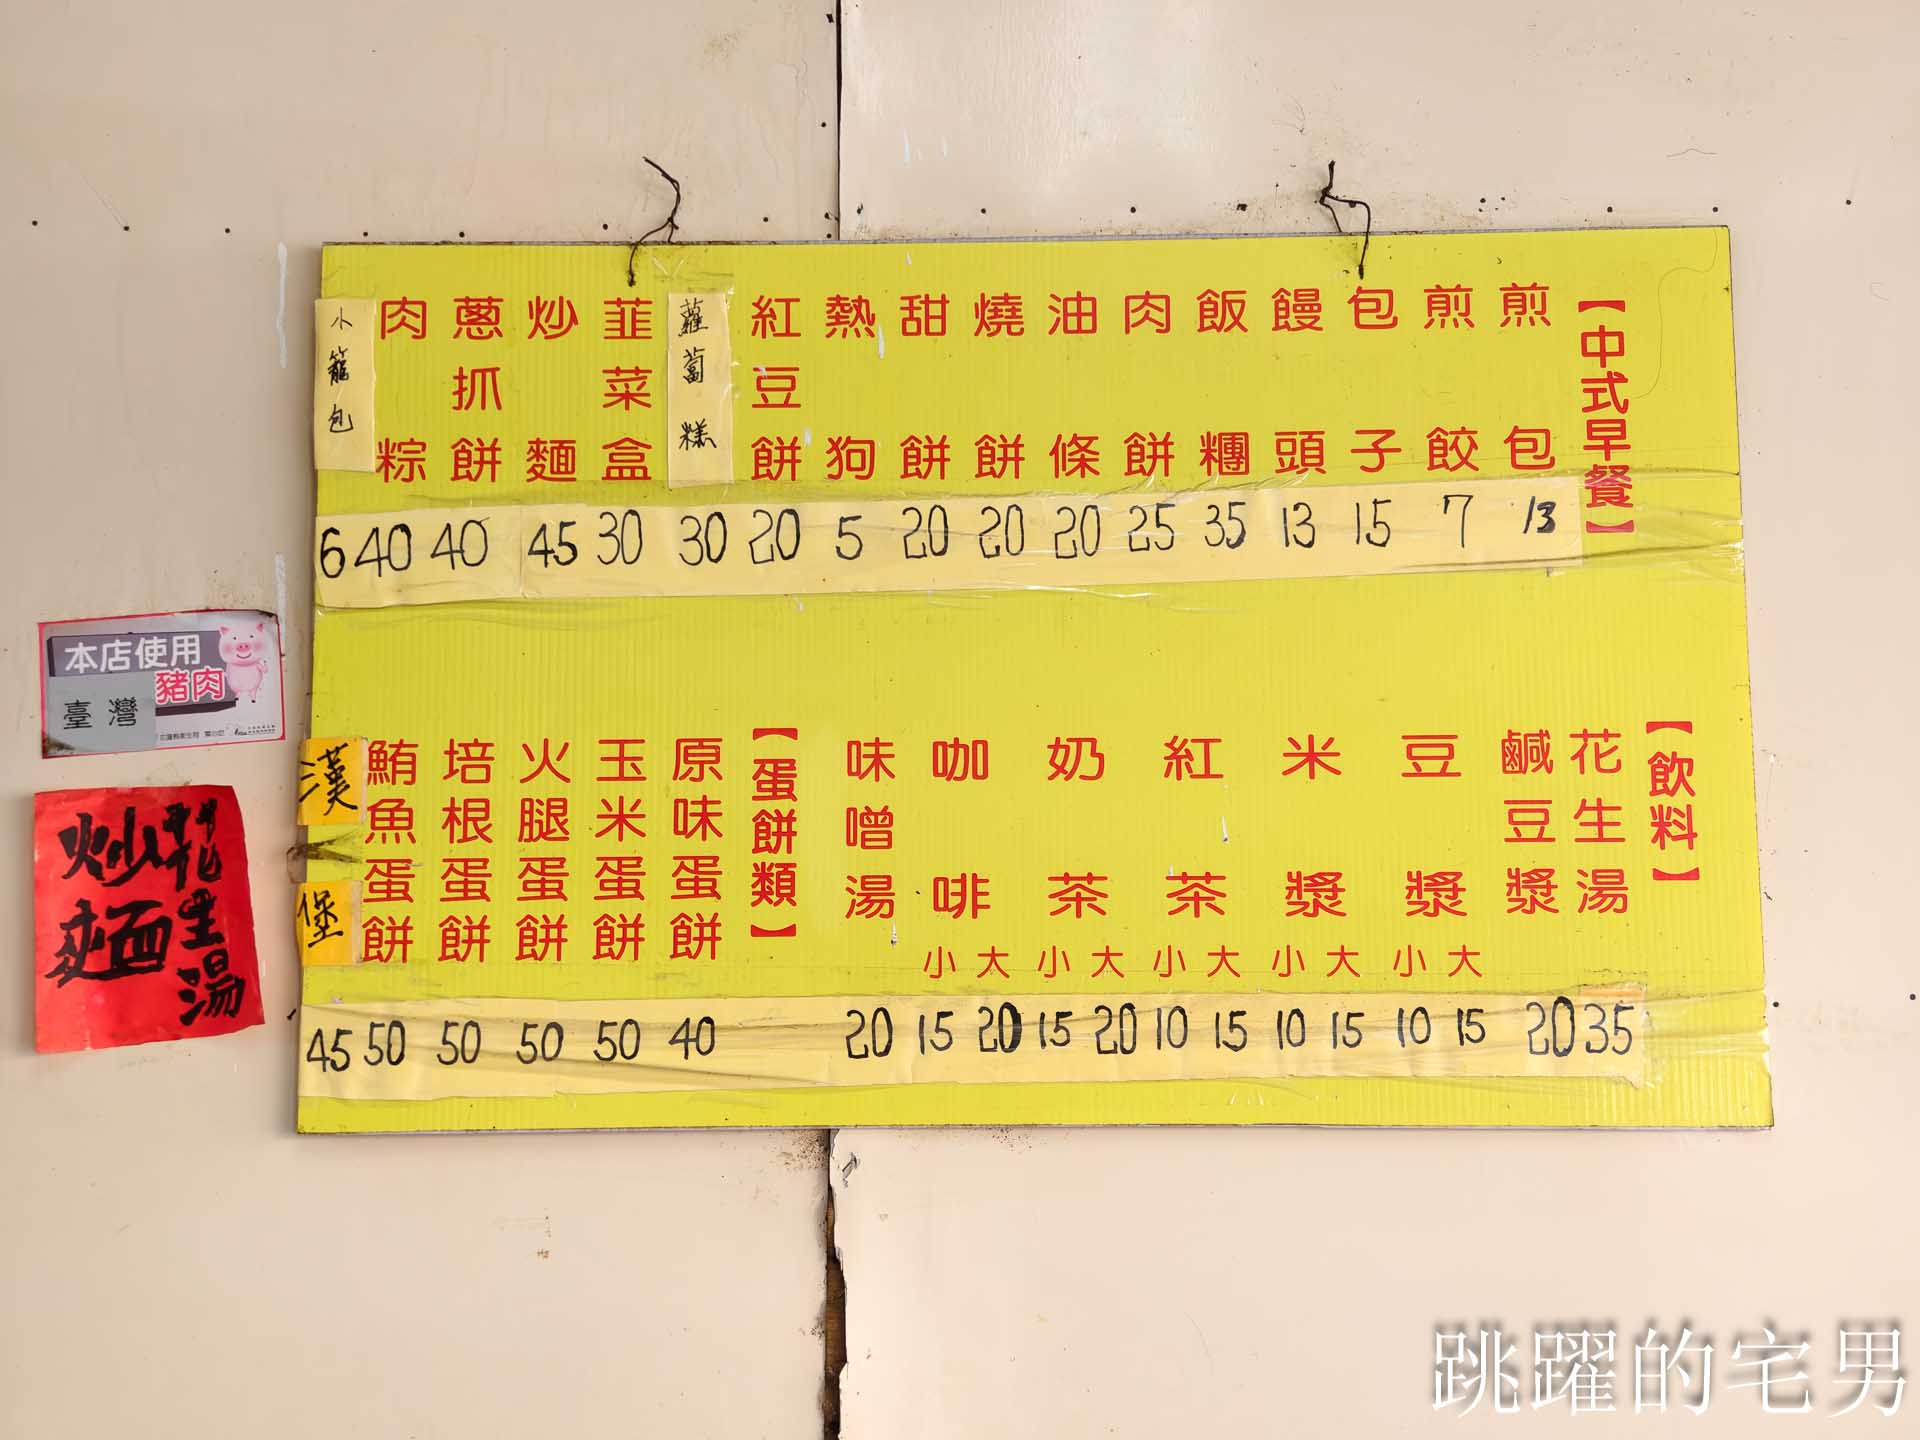 【中式早餐】
煎包 13
煎餃 7
包子 15
饅頭 13
飯糰 35
肉餅 25
油條 20
燒餅 20
甜餅 20
熱狗 5
紅豆餅 20
蘿蔔糕 30
韮菜盒 30
炒麵 45
蔥抓餅 40
肉粽 40
小籠包 6
【飲料】
花生湯 35
鹹豆漿 20
豆漿 大 15 小 10
米漿 大 15 小 10
紅茶 大 15 小 10
奶茶 大 20 小 15
咖啡 大 20 小 15
味噌湯 20
【蛋餅類】
原味蛋餅 40
玉米蛋餅 50
火腿蛋餅 50
培根蛋餅 50
鮪魚蛋餅 50
漢堡 45
本店使用
臺灣豬肉
花生湯
炒麵
跳躍的宅男